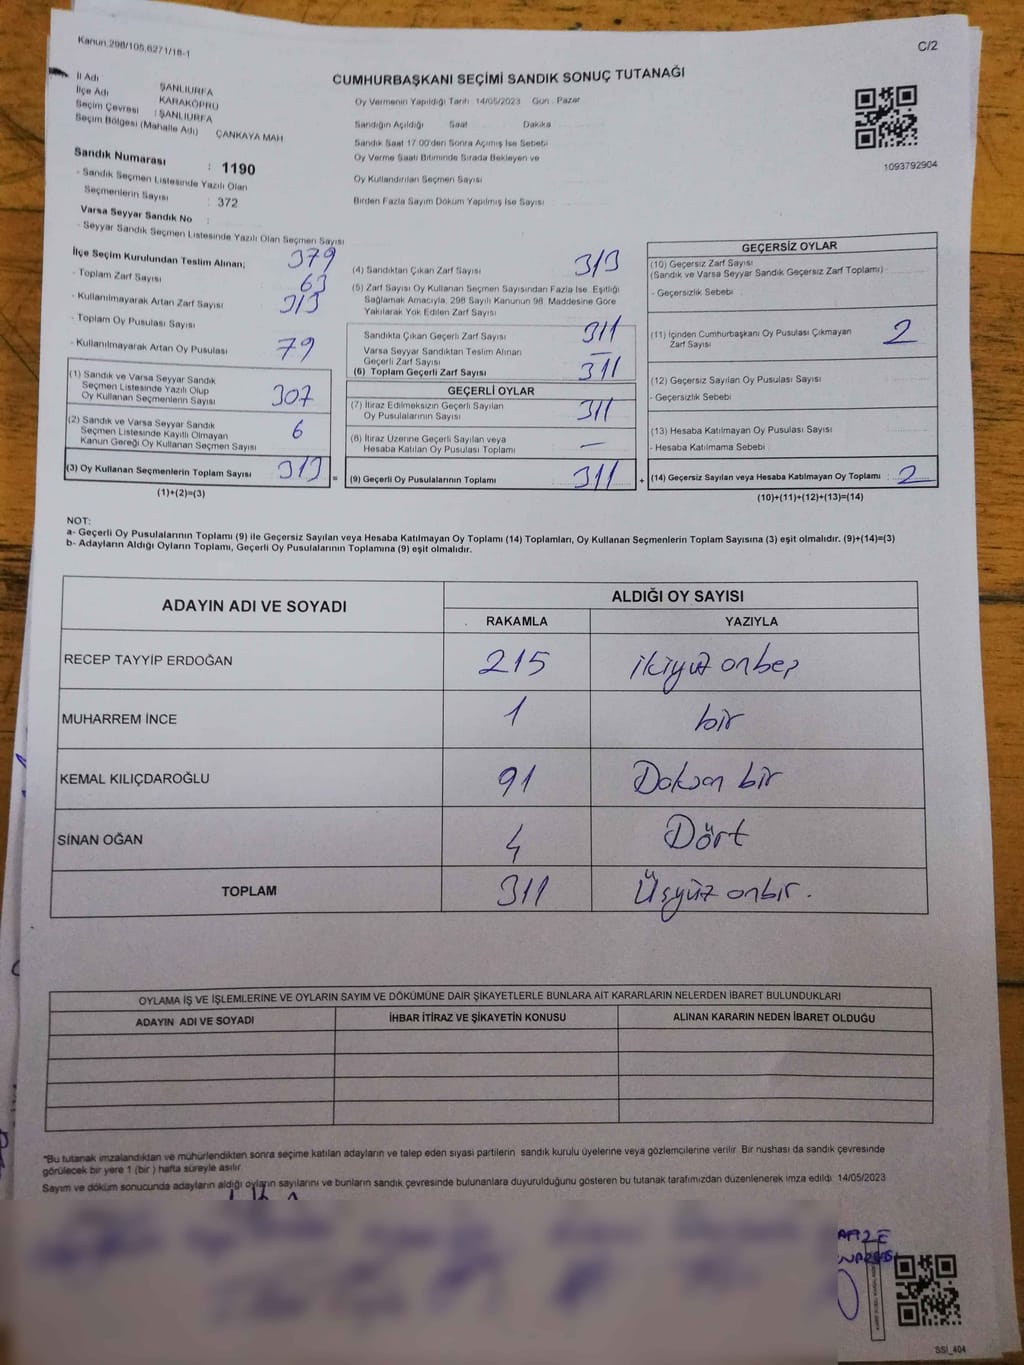 Kanun 298/105,6271/18-1
C/2
CUMHURBAŞKANI SEÇİMİ SANDIK SONUÇ TUTANAĞI
İl Adı ŞANLIURFA
İlçe Adı KARAKÖPRÜ
Seçim Çevresi : ŞANLIURFA
Seçim Bölgesi (Mahalle Adı) ÇANKAYA MAH
Sandık Numarası : 1190
- Sandık Seçmen Listesinde Yazılı Olan
Seçmenlerin Sayısı : 372
Varsa Seyyar Sandık No :
- Seyyar Sandık Seçmen Listesinde Yazılı Olan Seçmen Sayısı
Oy Vermenin Yapıldığı Tarih : 14/05/2023 Gün : Pazar
Sandığın Açıldığı Saat Dakika
Sandık Saat 17:00'den Sonra Açılmış İse Sebebi
Oy Verme Saati Bitiminde Sırada Bekleyen ve
Oy Kullandırılan Seçmen Sayısı
Birden Fazla Sayım Döküm Yapılmış İse Sayısı
1093792904
İlçe Seçim Kurulundan Teslim Alınan;
- Toplam Zarf Sayısı 379
- Kullanılmayarak Artan Zarf Sayısı 63
- Toplam Oy Pusulası Sayısı 313
- Kullanılmayarak Artan Oy Pusulası 79
(1) Sandık ve Varsa Seyyar Sandık
Seçmen Listesinde Yazılı Olup
Oy Kullanan Seçmenlerin Sayısı 307
(2) Sandık ve Varsa Seyyar Sandık
Seçmen Listesinde Kayıtlı Olmayan
Kanun Gereği Oy Kullanan Seçmen Sayısı 6
(3) Oy Kullanan Seçmenlerin Toplam Sayısı 313 =
(1)+(2)=(3)
(4) Sandıktan Çıkan Zarf Sayısı 313
(5) Zarf Sayısı Oy Kullanan Seçmen Sayısından Fazla İse, Eşitliği
Sağlamak Amacıyla, 298 Sayılı Kanunun 98. Maddesine Göre
Yakılarak Yok Edilen Zarf Sayısı
Sandıkta Çıkan Geçerli Zarf Sayısı 311
Varsa Seyyar Sandıktan Teslim Alınan
Geçerli Zarf Sayısı —
(6) Toplam Geçerli Zarf Sayısı 311
GEÇERLİ OYLAR
(7) İtiraz Edilmeksizin Geçerli Sayılan
Oy Pusulalarının Sayısı 311
(8) İtiraz Üzerine Geçerli Sayılan veya
Hesaba Katılan Oy Pusulası Toplamı —
(9) Geçerli Oy Pusulalarının Toplamı 311 +
GEÇERSİZ OYLAR
(10) Geçersiz Zarf Sayısı
(Sandık ve Varsa Seyyar Sandık Geçersiz Zarf Toplamı)
- Geçersizlik Sebebi
(11) İçinden Cumhurbaşkanı Oy Pusulası Çıkmayan
Zarf Sayısı 2
(12) Geçersiz Sayılan Oy Pusulası Sayısı
- Geçersizlik Sebebi
(13) Hesaba Katılmayan Oy Pusulası Sayısı
- Hesaba Katılmama Sebebi
(14) Geçersiz Sayılan veya Hesaba Katılmayan Oy Toplamı 2
(10)+(11)+(12)+(13)=(14)
NOT:
a- Geçerli Oy Pusulalarının Toplamı (9) ile Geçersiz Sayılan veya Hesaba Katılmayan Oy Toplamı (14) Toplamları, Oy Kullanan Seçmenlerin Toplam Sayısına (3) eşit olmalıdır. (9)+(14)=(3)
b- Adayların Aldığı Oyların Toplamı, Geçerli Oy Pusulalarının Toplamına (9) eşit olmalıdır.
ADAYIN ADI VE SOYADI ALDIĞI OY SAYISI
RAKAMLA YAZIYLA
RECEP TAYYİP ERDOĞAN 215 ikiyüz onbeş
MUHARREM İNCE 1 bir
KEMAL KILIÇDAROĞLU 91 Doksan bir
SİNAN OĞAN 4 Dört
TOPLAM 311 Üçyüz onbir.
OYLAMA İŞ VE İŞLEMLERİNE VE OYLARIN SAYIM VE DÖKÜMÜNE DAİR ŞİKAYETLERLE BUNLARA AİT KARARLARIN NELERDEN İBARET BULUNDUKLARI
ADAYIN ADI VE SOYADI İHBAR İTİRAZ VE ŞİKAYETİN KONUSU ALINAN KARARIN NEDEN İBARET OLDUĞU
*Bu tutanak imzalandıktan ve mühürlendikten sonra seçime katılan adayların ve talep eden siyasi partilerin sandık kurulu üyelerine veya gözlemcilerine verilir. Bir nushası da sandık çevresinde
görülecek bir yere 1 (bir ) hafta süreyle asılır.
Sayım ve döküm sonucunda adayların aldığı oyların sayılarını ve bunların sandık çevresinde bulunanlara duyurulduğunu gösteren bu tutanak tarafımızdan düzenlenerek imza edildi. 14/05/2023
SSI_404